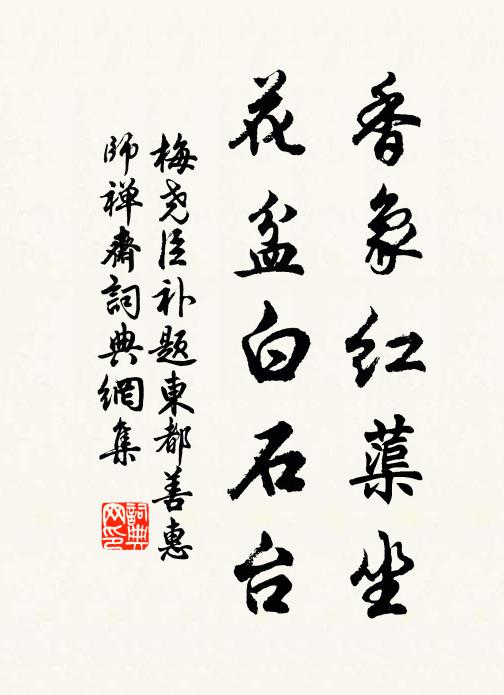 香象红蕖坐
花盆白石台
梅尧臣补题東都善惠
师禅齋詞典網集
詞典网印